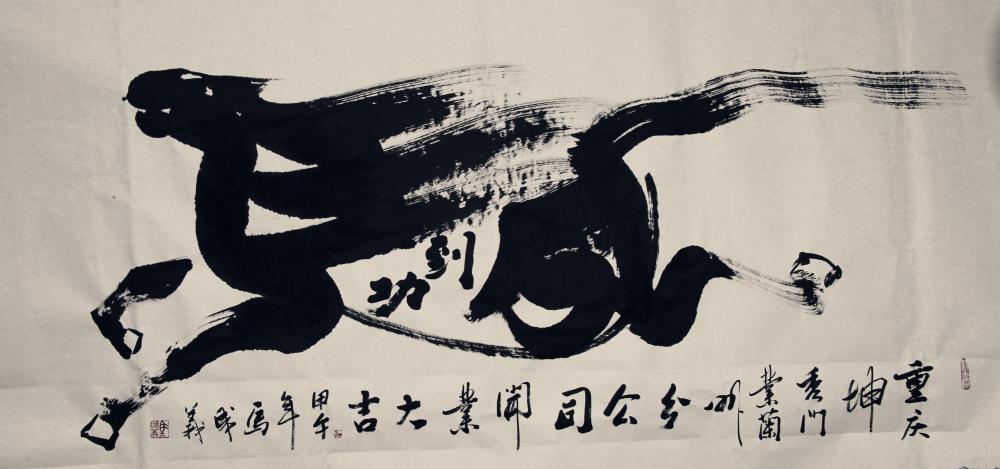 到
功
重庆
坤
秀门
業蘭
州
分
公
司
開
業
大
吉
甲午
年
馬
成
義